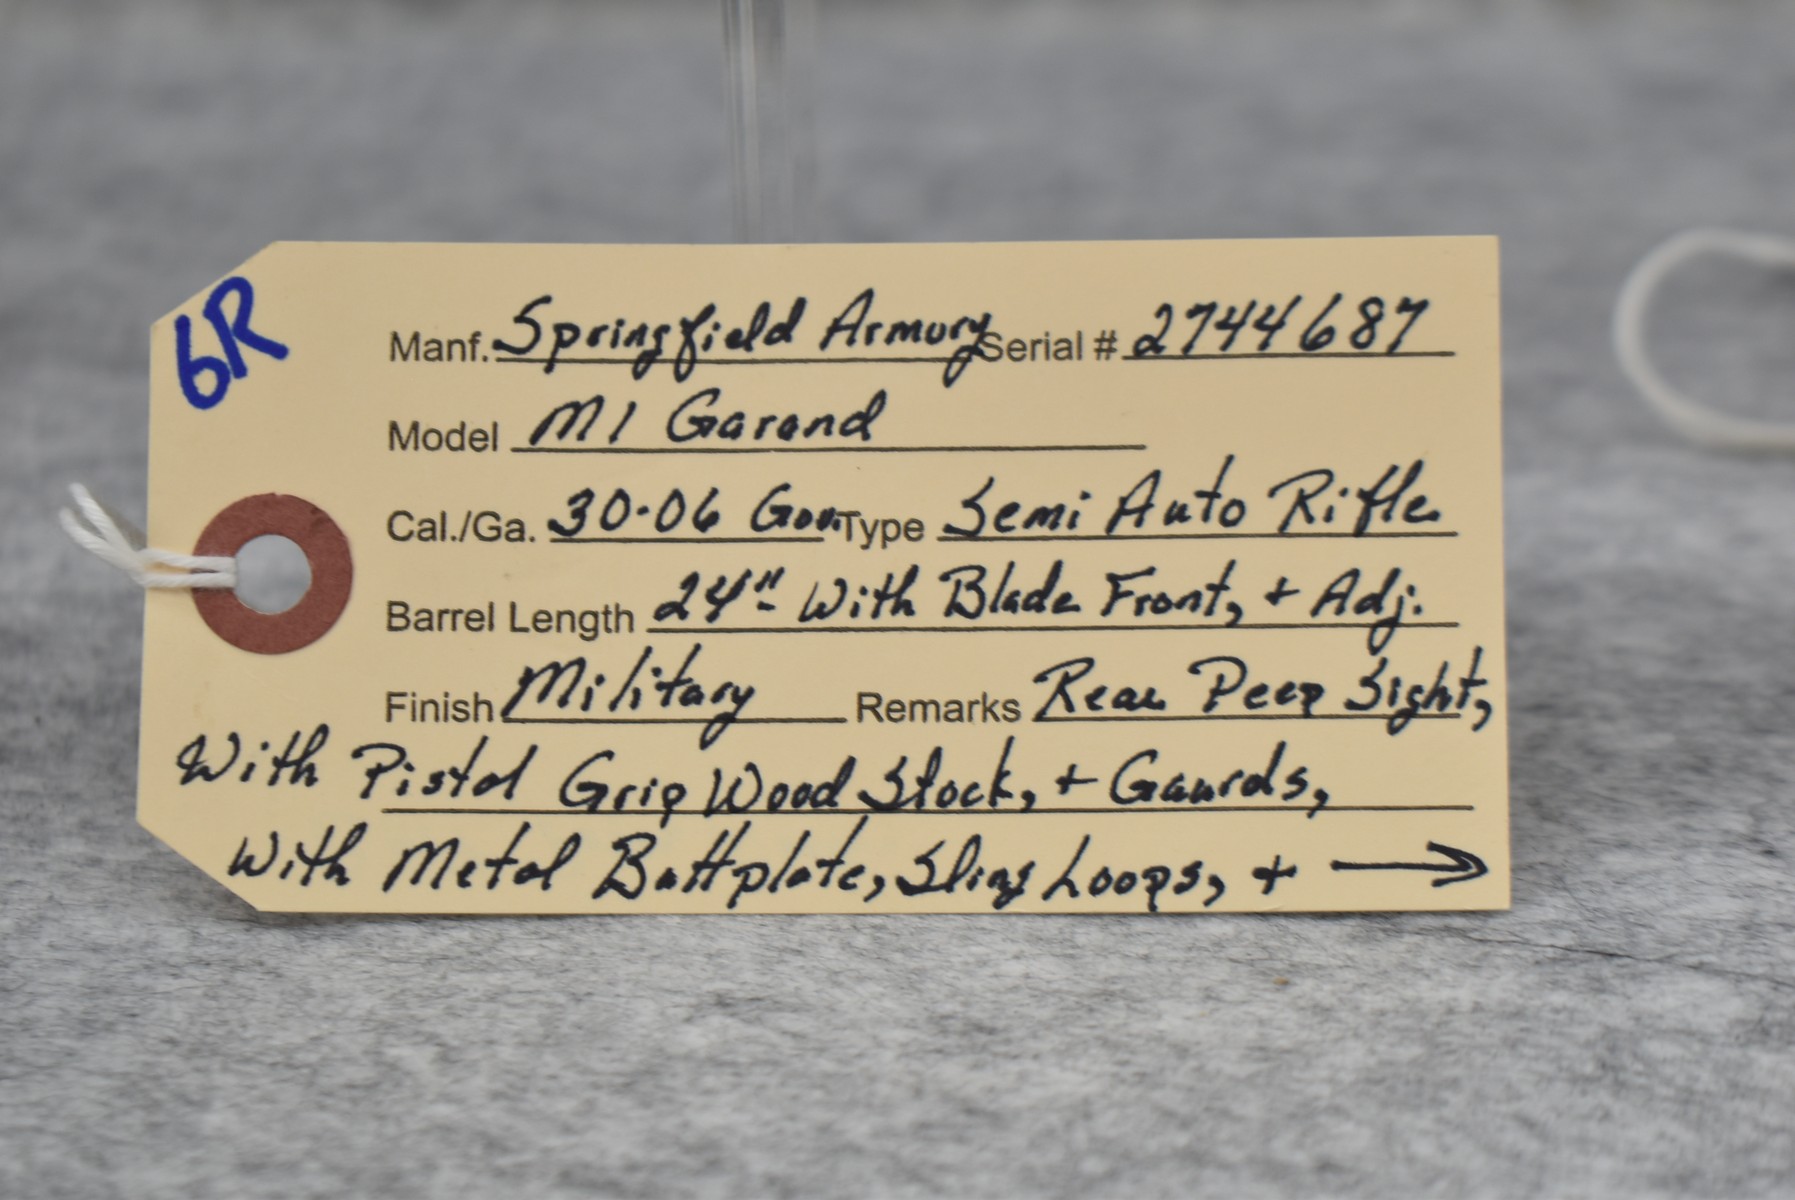 6R
Manf. Springfield Armory Serial # 2744687
Model M1 Garand
Cal./Ga. 30-06 Gov. Type Semi Auto Rifle
Barrel Length 24" With Blade Front, + Adj.
Finish Military Remarks Rear Peep Sight,
With Pistol Grip Wood Stock, + Gaurds,
With Metal Buttplate, Sling Loops, + →